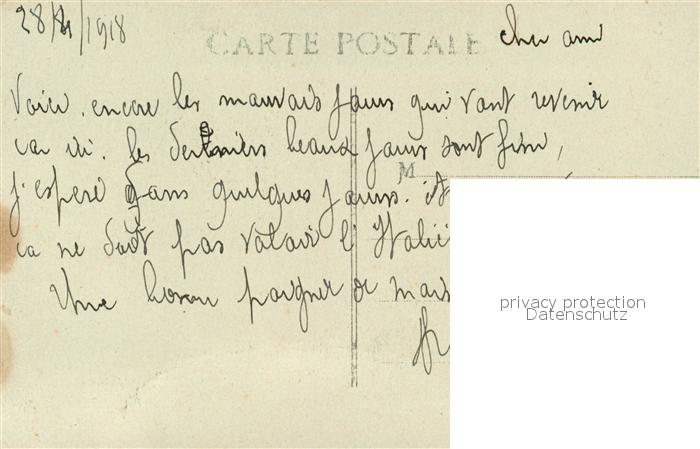 28/8/1918
CARTE POSTALE
cher ami
Voici encore les mauvais jours qui vont revenir
car ici. les derniers beaux jours sont fini,
j'espere dans quelques jours.
ca ne doit pas valoir l'Itali
M
Une bonne poigner de main
privacy protection
Datenschutz